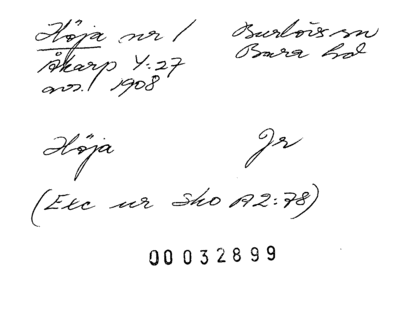 Höja nr 1 Burlövs sn
Åkarp 4:27 Bara hd
avs. 1908
Höja Jr
(Exc ur Sko A2:78)
00032899